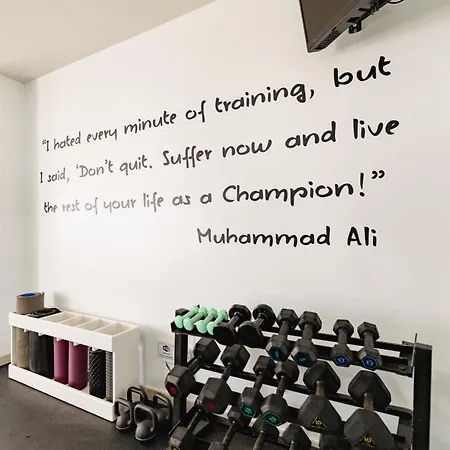 "I hated every minute of training, but
I said, 'Don't quit. Suffer now and live
the rest of your life as a Champion!"
Muhammad Ali